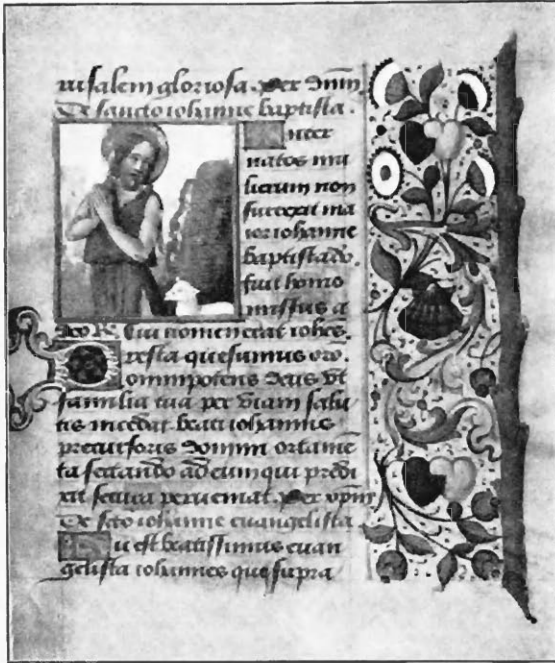 rusalem gloriosa. Per dnm
De sancto iohanne baptista.
Inter
natos mu
lierum non
surrexit ma
ior iohanne
baptista do
fuit homo
missus a
deo R. Cui nomen erat iohes.
Presta quesumus om̄.
omnipotens deus vt
familia tua per viam salu
tis incedat. beati iohannis
precursoris domini ortame
ta sectando ad eum qui predi
xit secura perueniat. Per xpm
De sco iohanne euangelista
Tu est beatissimus euan
gelista iohannes qui supra